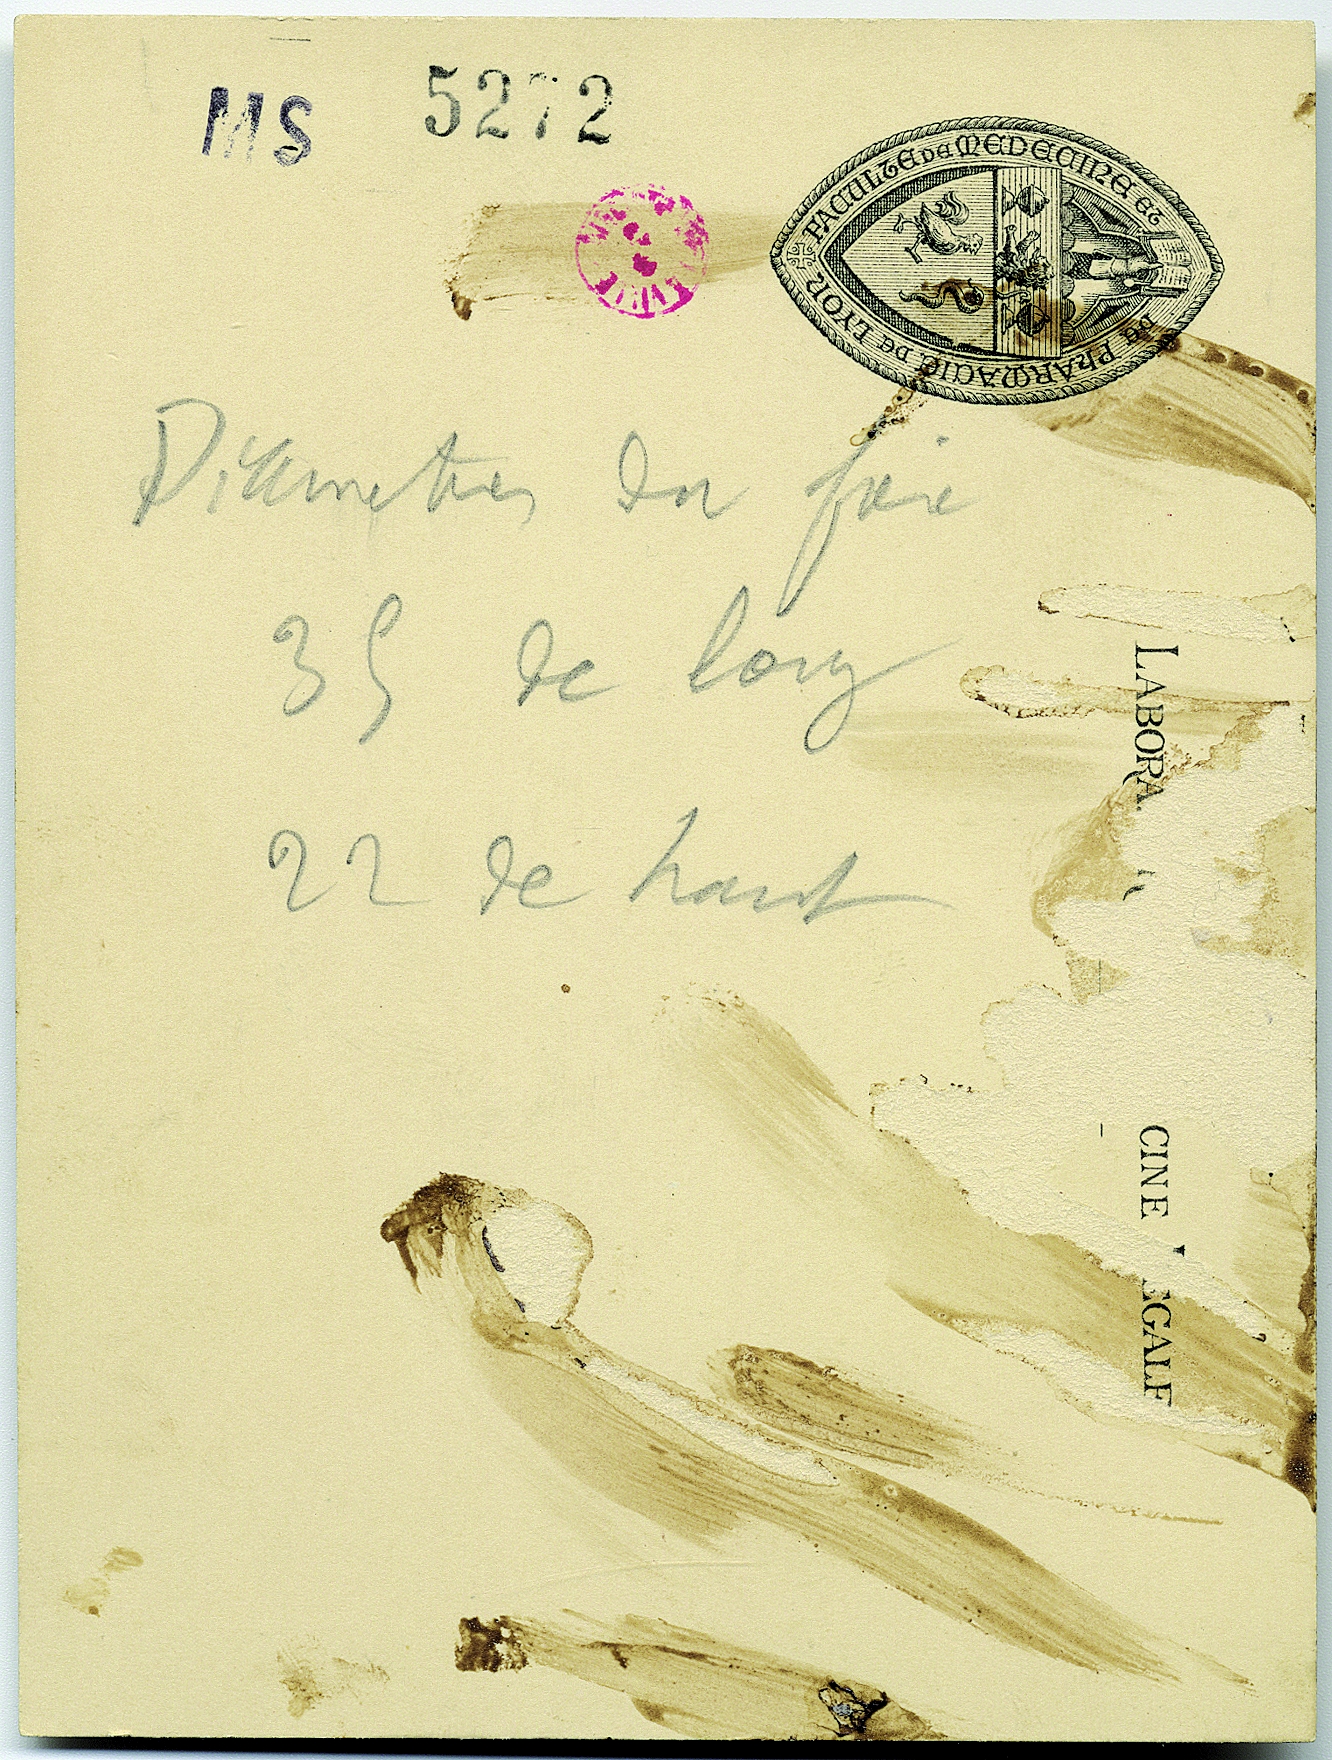 MS 5272
FACULTÉ DE MEDECINE ET DE PHARMACIE DE LYON
Diametres du foie
35 de long
22 de haut
LABORA
CINE
EGALE